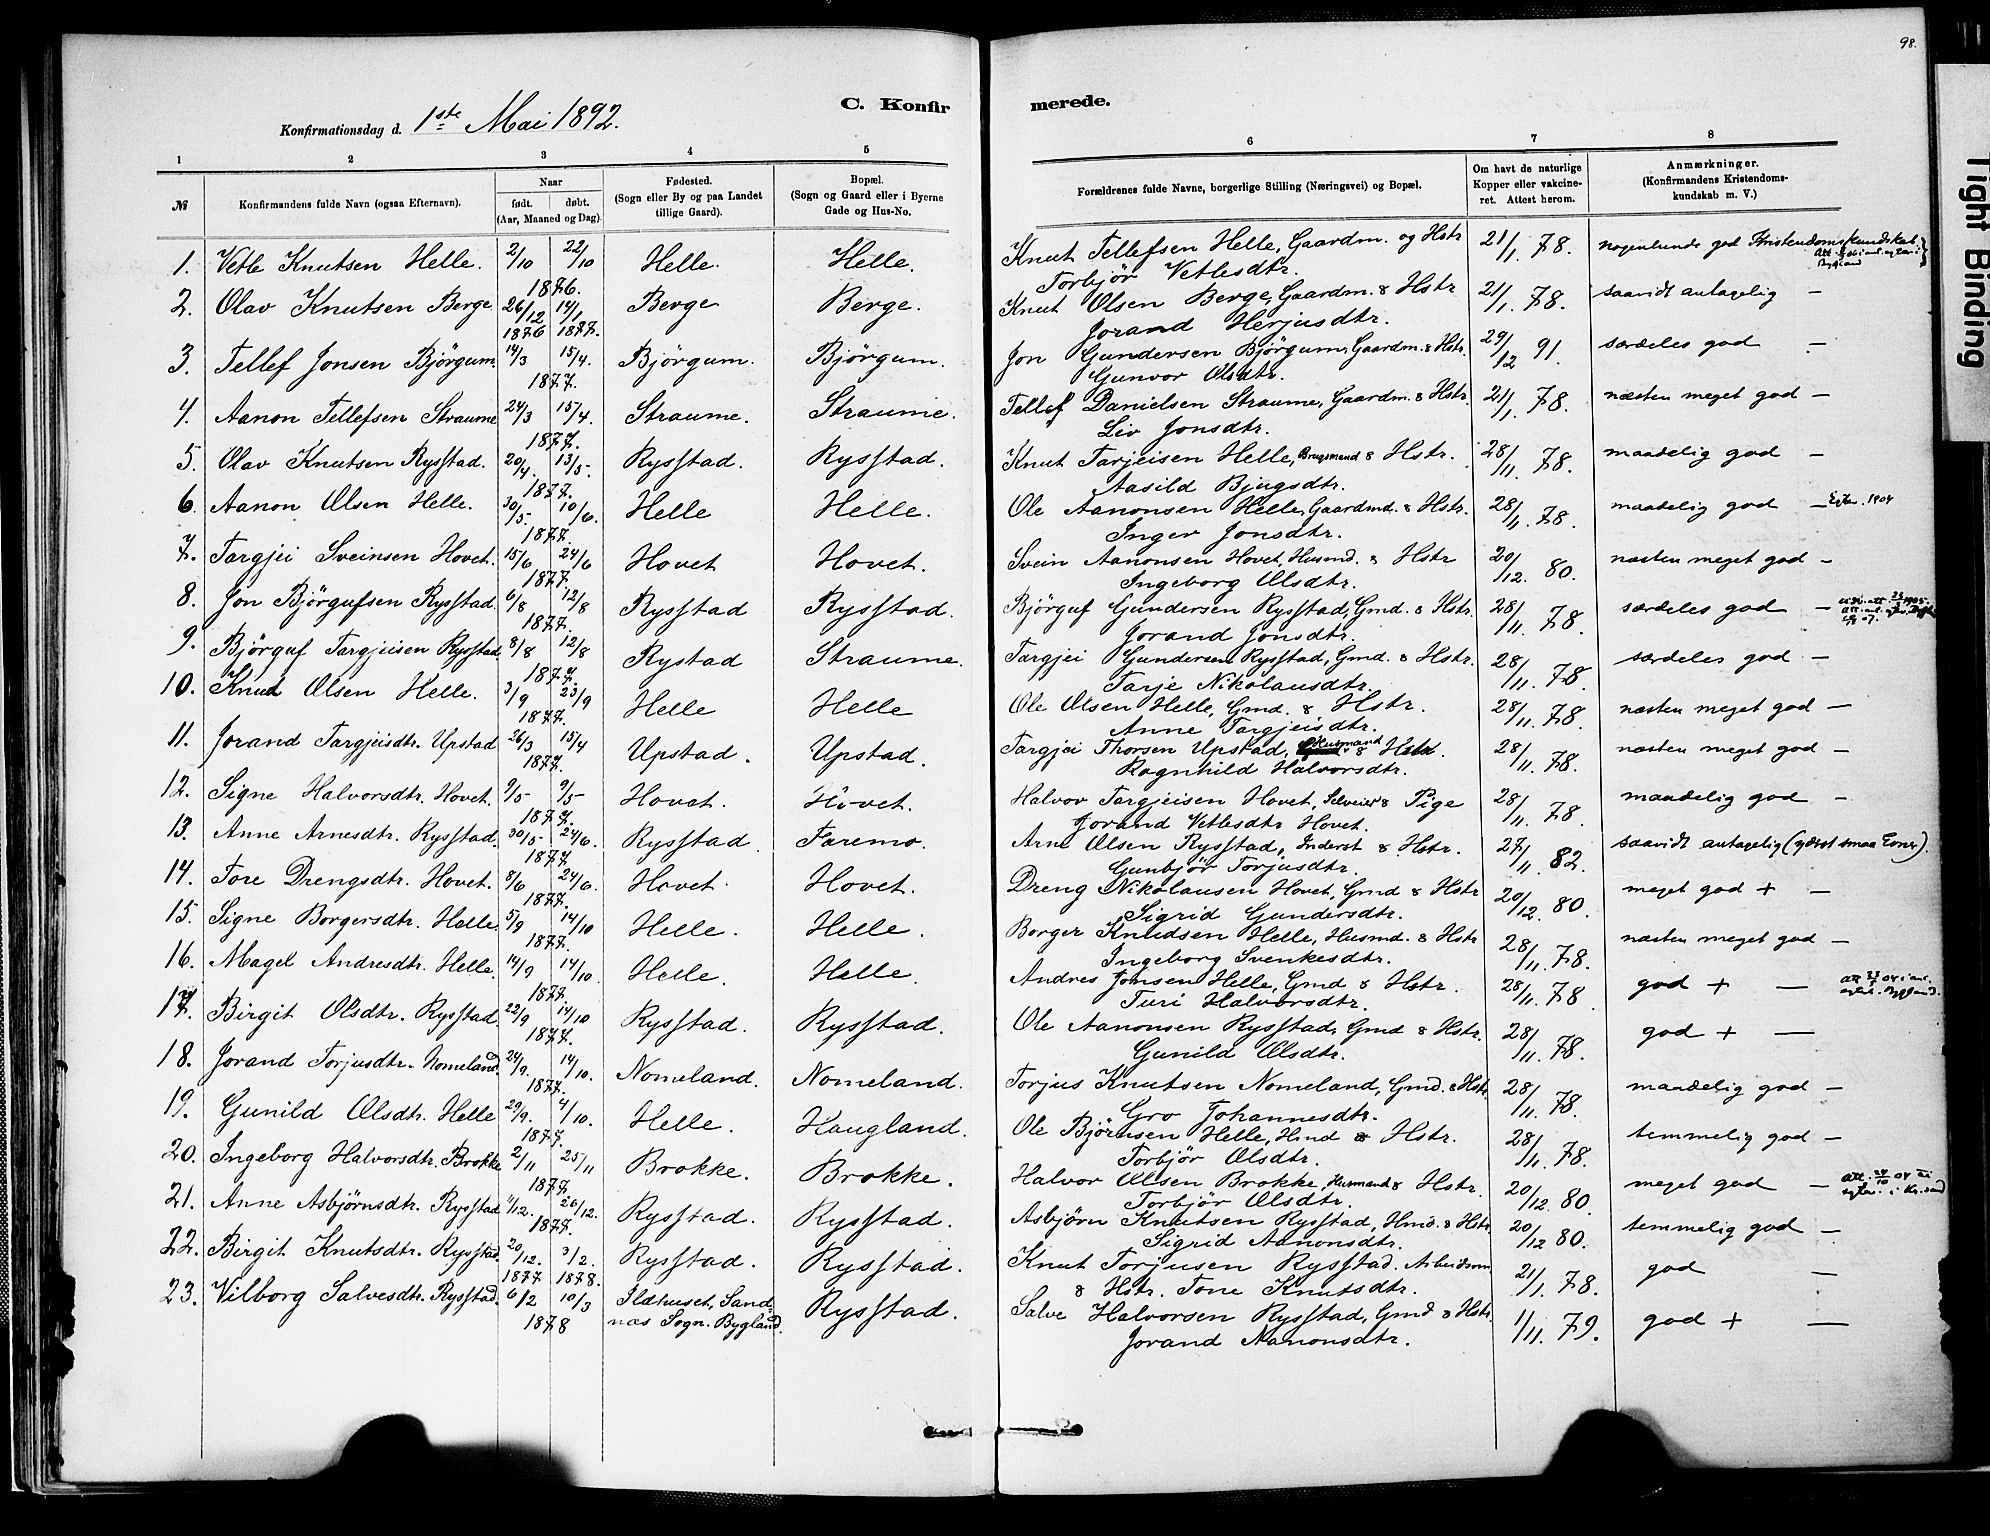 98.
C. Konfir
merede.
Konfirmationsdag d. 1ste Mai 1892.
1 2 3 4 5 6 7 8
№ Konfirmandens fulde Navn (ogsaa Efternavn). Naar født. døbt. (Aar, Maaned og Dag). Fødested. (Sogn eller By og paa Landet tillige Gaard). Bopæl. (Sogn og Gaard eller i Byerne Gade og Hus-No. Forældrenes fulde Navne, borgerlige Stilling (Næringsvei) og Bopæl. Om havt de naturlige Kopper eller vakcineret. Attest herom. Anmærkninger. (Konfirmandens Kristendomskundskab m. V.)
1. Vetle Knutsen Helle. 2/10 22/10 1876 Helle. Helle. Knut Tellefsen Helle, Gaardm. og Hstr Torbjør Vetlesdtr. 21/1 78. nogenlunde god Kristendomskundskab
2. Olav Knutsen Berge 26/12 1876 14/1 1877. Berge Berge. Knut Olsen Berge, Gaardm. & Hstr Jorand Herjusdtr. 21/1. 78. saavidt antagelig —
3. Tellef Jonsen Bjørgum. 14/3 15/4. 1877. Bjørgum. Bjørgum. Jon Gundersen Bjørgum, Gaardm. & Hstr. Gunvor Olsdtr. 29/12 91. særdeles god —
4. Aanon Tellefsen Straume 24/3 15/4. 1877. Straume. Straume. Tellef Danielsen Straume, Gaardm. & Hstr. Liv Jonsdtr. 21/1. 78. næsten meget god —
5. Olav Knutsen Rysstad. 20/4. 13/5. 1877. Rysstad. Rysstad. Knut Tarjeisen Helle, Brugsmand & Hstr. Aasild Bjugsdtr. 28/11. 78. maadelig god —
6. Aanon Olsen Helle. 30/5. 10/6. 1877. Helle Helle. Ole Aanonsen Helle, Gaardmd. & Hstr. Inger Jonsdtr. 28/11. 78. maadelig god — 1904
7. Targjei Sveinsen Hovet. 15/6 24/6 1877. Hovet Hovet. Svein Aanonsen Hovet, Husmd. & Hstr Ingeborg Olsdtr. 20/12. 80. næsten meget god —
8. Jon Bjørgufsen Rysstad. 6/8 12/8 1877. Rysstad Rysstad. Bjørguf Gundersen Rysstad, Gmd. & Hstr. Jorand Jonsdtr. 28/11. 78. særdeles god —
9. Bjørguf Targjeisen Rysstad. 8/8 12/8 1877. Rystad Straume. Targjei Gundersen Rysstad, Gmd. & Hstr. Tarje Nikolausdtr. 28/11. 78. særdeles god —
10. Knud Olsen Helle. 3/9 23/9 1877. Helle Helle Ole Olsen Helle, Gmd. & Hstr. Anne Targjeisdtr. 28/11. 78. næsten meget god —
11. Jorand Targjeisdtr. Upstad 26/3 15/4 1877. Upstad. Upstad. Targjei Thorsen Upstad, Husmand & Hstr. Ragnhild Halvorsdtr. 28/11. 78. næsten meget god —
12. Signe Halvorsdtr. Hovet. 9/5 9/5 1877. Hovet. Hovet. Halvor Targjeisen Hovet, Selveier & Pige Jorand Vetlesdtr Hovet. 28/11. 78. maadelig god —
13. Anne Arnesdtr. Rysstad. 30/5 24/6. 1877 Rysstad. Faremo. Arne Olsen Rysstad, Inderst & Hstr. Gunbjør Torjusdtr. 27/11. 82. saavidt antagelig (yderst smaa Evner).
14. Tore Drengsdtr. Hovet. 8/6 24/6. 1877. Hovet. Hovet. Dreng Nikolausen Hovet, Gmd & Hstr Sigrid Gundersdtr. 20/12. 80. meget god + —
15. Signe Borgersdtr. Helle 5/9 14/10 1877. Helle. Helle. Borger Knudsen Helle, Husmd. & Hstr Ingeborg Svenkesdtr. 28/11. 78. næsten meget god —
16. Magel Andresdtr. Helle. 14/9 14/10. 1877. Helle. Helle. Andres Jonsen Helle, Gmd & Hstr. Turi Halvorsdtr. 28/11. 78 god + —
17. Birgit Olsdtr. Rysstad. 22/9 14/10 1877. Rysstad. Rysstad. Ole Aanonsen Rysstad, Gmd & Hstr. Gunild Olsdtr. 28/11. 78. god + —
18. Jorand Torjusdtr. Nomeland. 24/9. 14/10. 1877. Nomeland. Nomeland. Torjus Knutsen Nomeland, Gmd. & Hstr Gro Johannesdtr. 28/11. 78. maadelig god —
19. Gunild Olsdtr. Helle 29/9. 4/10. 1877. Helle. Haugland. Ole Bjørnsen Helle, Hmd & Hstr. Torbjør Olsdtr. 28/11. 78. temmelig god —
20. Ingeborg Halvorsdtr. Brokke 2/11 25/11 1877. Brokke. Brokke. Halvor Olsen Brokke, Husmand & Hstr. Torbjør Olsdtr. 20/12 80. meget god —
21. Anne Asbjørnsdtr. Rysstad 1/12. 26/12. 1877. Rysstad. Rysstad. Asbjørn Knutsen Rysstad, Hmd. & Hstr Sigrid Aanonsdtr. 20/12 80. temmelig god —
22. Birgit Knutsdtr. Rysstad. 20/12. 1877 3/2. 1878. Rysstad. Rysstad. Knut Torjusen Rysstad. Arbeidsm & Hstr. Tone Knutsdtr. 21/1. 78. god —
23. Vilborg Salvesdtr. Rysstad. 6/2 10/3 1878 Slæthuset, Sandnæs Sogn. Bygland. Rysstad. Salve Halvorsen Rysstad, Gmd & Hstr Jorand Aanonsdtr. 1/11. 79. god + —
Tight Binding